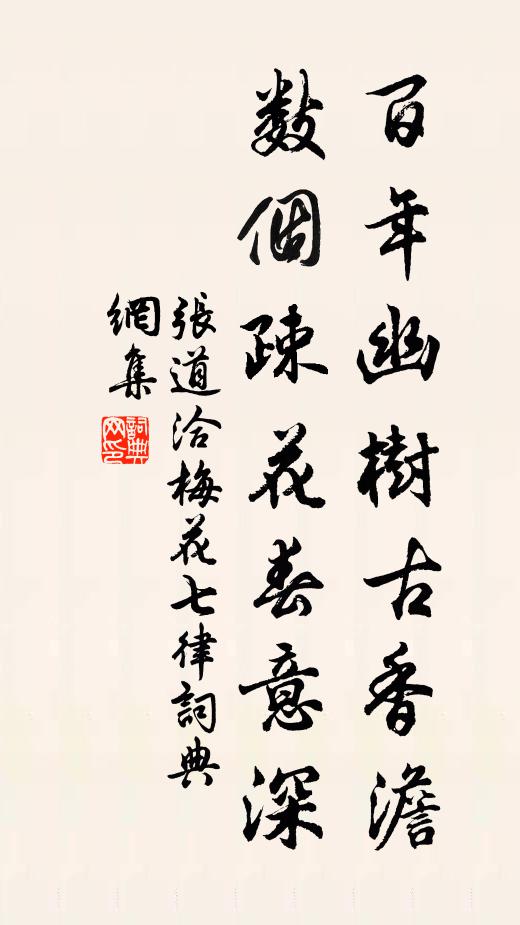 百年幽樹古香澹
數個疎花春意深
張道洽梅花七律詞典
網集
詞典
网印